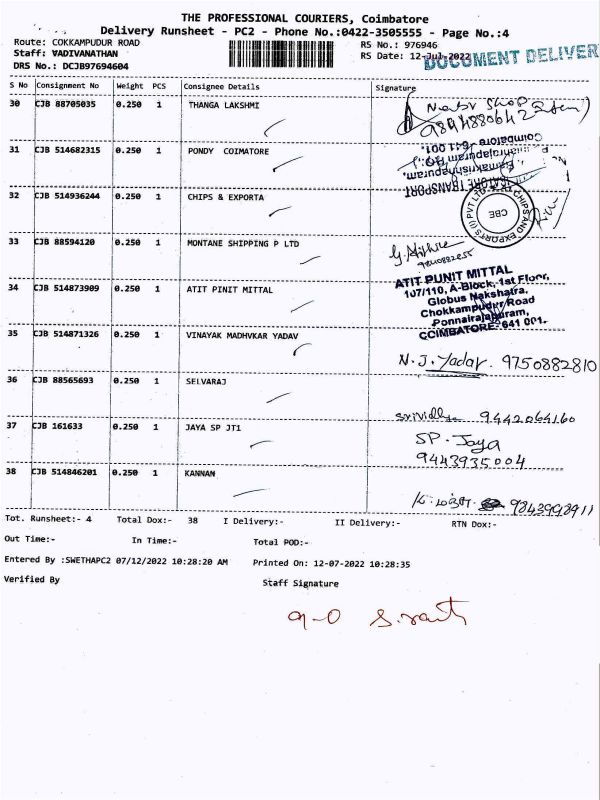 THE PROFESSIONAL COURIERS, Coimbatore
Delivery Runsheet - PC2 - Phone No.:0422-3505555 - Page No.:4
Route: COKKAMPUDUR ROAD RS No.: 976946
Staff: VADIVANATHAN RS Date: 12-Jul-2022 DOCUMENT DELIVER
DRS No.: DCJB97694604
S No Consignment No Weight PCS Consignee Details Signature
30 CJB 88705035 0.250 1 THANGA LAKSHMI
31 CJB 514682315 0.250 1 PONDY COIMATORE
Coimbatore - 641 001.
32 CJB 514936244 0.250 1 CHIPS & EXPORTA
CHIPS AND EXPORTS (I) PVT LTD CBE
33 CJB 88594120 0.250 1 MONTANE SHIPPING P LTD
34 CJB 514873909 0.250 1 ATIT PINIT MITTAL
ATIT PUNIT MITTAL
107/110, A-Block, 1st Floor,
Globus Nakshatra,
Chokkampudur Road
Ponnairajapuram,
COIMBATORE-641 001.
35 CJB 514871326 0.250 1 VINAYAK MADHVKAR YADAV
N.J. Yadav. 9750882810
36 CJB 88565693 0.250 1 SELVARAJ
9442064160
37 CJB 161633 0.250 1 JAYA SP JT1
SP. Jaya
9443935004
38 CJB 514846201 0.250 1 KANNAN
9843998911
Tot. Runsheet:- 4 Total Dox:- 38 I Delivery:- II Delivery:- RTN Dox:-
Out Time:- In Time:- Total POD:-
Entered By :SWETHAPC2 07/12/2022 10:28:20 AM Printed On: 12-07-2022 10:28:35
Verified By Staff Signature